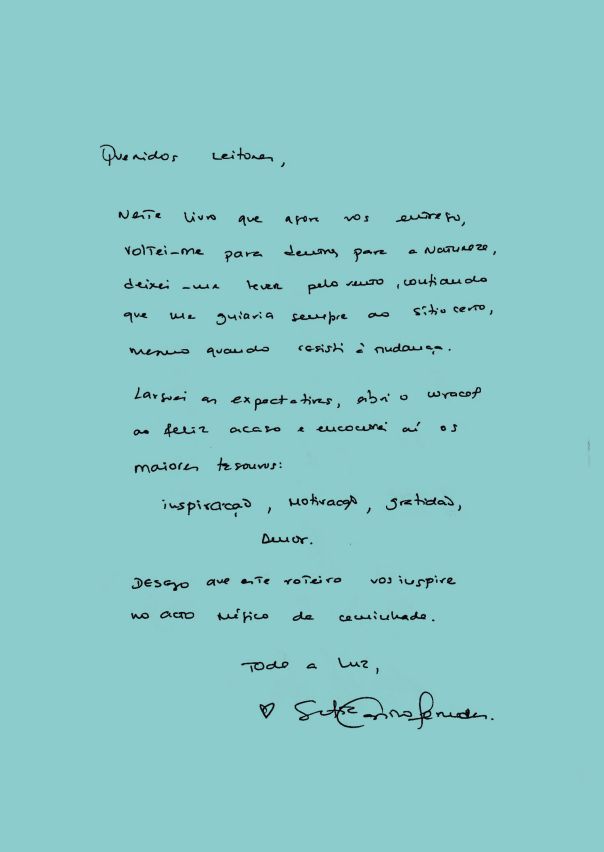 Queridos Leitores,
Neste livro que agora vos entrego,
voltei-me para dentro, para a Natureza,
deixei-me levar pelo vento, confiando
que me guiaria sempre ao sítio certo,
mesmo quando resisti à mudança.
Larguei as expectativas, abri o coração
ao feliz acaso e encontrei aí os
maiores tesouros:
inspiração, motivação, gratidão,
Amor.
Desejo que este roteiro vos inspire
no acto mágico da caminhada.
Toda a Luz,